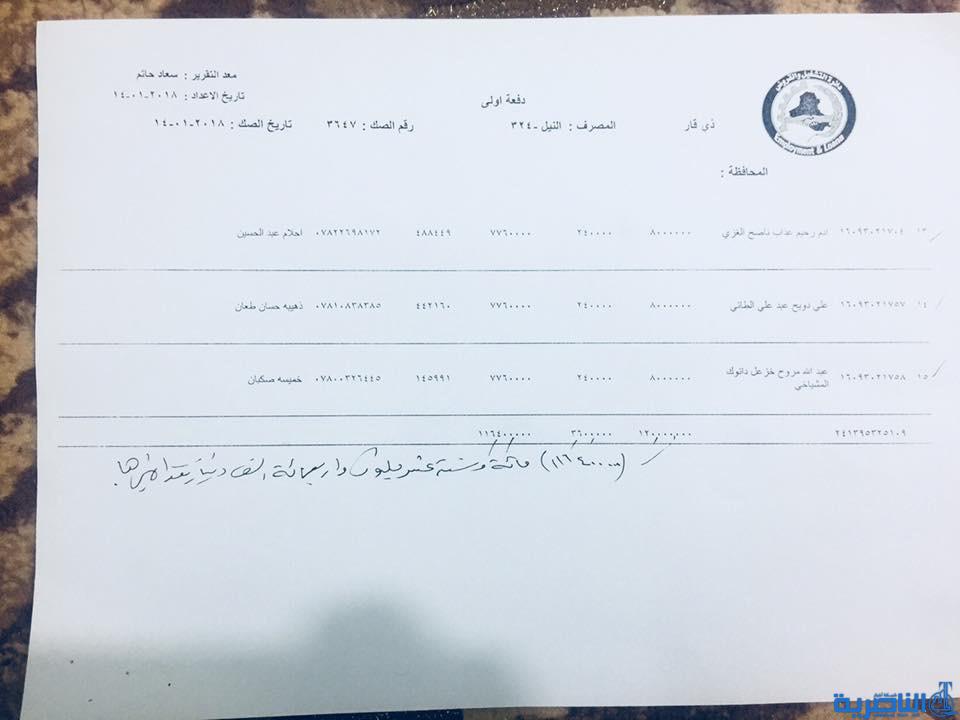 دائرة التشغيل والقروض
Employment & Loans
معد التقرير : سعاد حاتم
تاريخ الاعداد : ٢٠١٨-٠١-١٤
دفعة اولى
ذي قار المصرف : النيل -٣٢٤ رقم الصك : ٣٦٤٧ تاريخ الصك : ٢٠١٨-٠١-١٤
المحافظة :
١٣ ١٦٠٩٣٠٢١٧٠٤ ادم رحيم عذاب ناصح الغزي ٨٠٠٠٠٠٠ ٢٤٠٠٠٠ ٧٧٦٠٠٠٠ ٤٨٨٤٤٩ ٠٧٨٢٢٦٩٨١٧٢ احلام عبد الحسين
١٤ ١٦٠٩٣٠٢١٧٥٧ علي دويح عبد علي الطائي ٨٠٠٠٠٠٠ ٢٤٠٠٠٠ ٧٧٦٠٠٠٠ ٤٤٢١٦٠ ٠٧٨١٠٨٣٨٣٨٥ ذهيبه حسان طعان
١٥ ١٦٠٩٣٠٢١٧٥٨ عبد الله مروح خزعل دانوك ٨٠٠٠٠٠٠ ٢٤٠٠٠٠ ٧٧٦٠٠٠٠ ١٤٥٩٩١ ٠٧٨٠٠٣٢٦٤٤٥ خميسه صكبان
المشياخي
٢٤١٣٩٥٣٢٥١٠٩ ١٢٠٠٠٠٠٠٠ ٣٦٠٠٠٠٠ ١١٦٤٠٠٠٠٠
(١١٦٤٠٠٠٠٠) مائة وستة عشر مليون واربعمائة الف دينار فقط لاغيرها.
شبكة أخبار
الناصرية